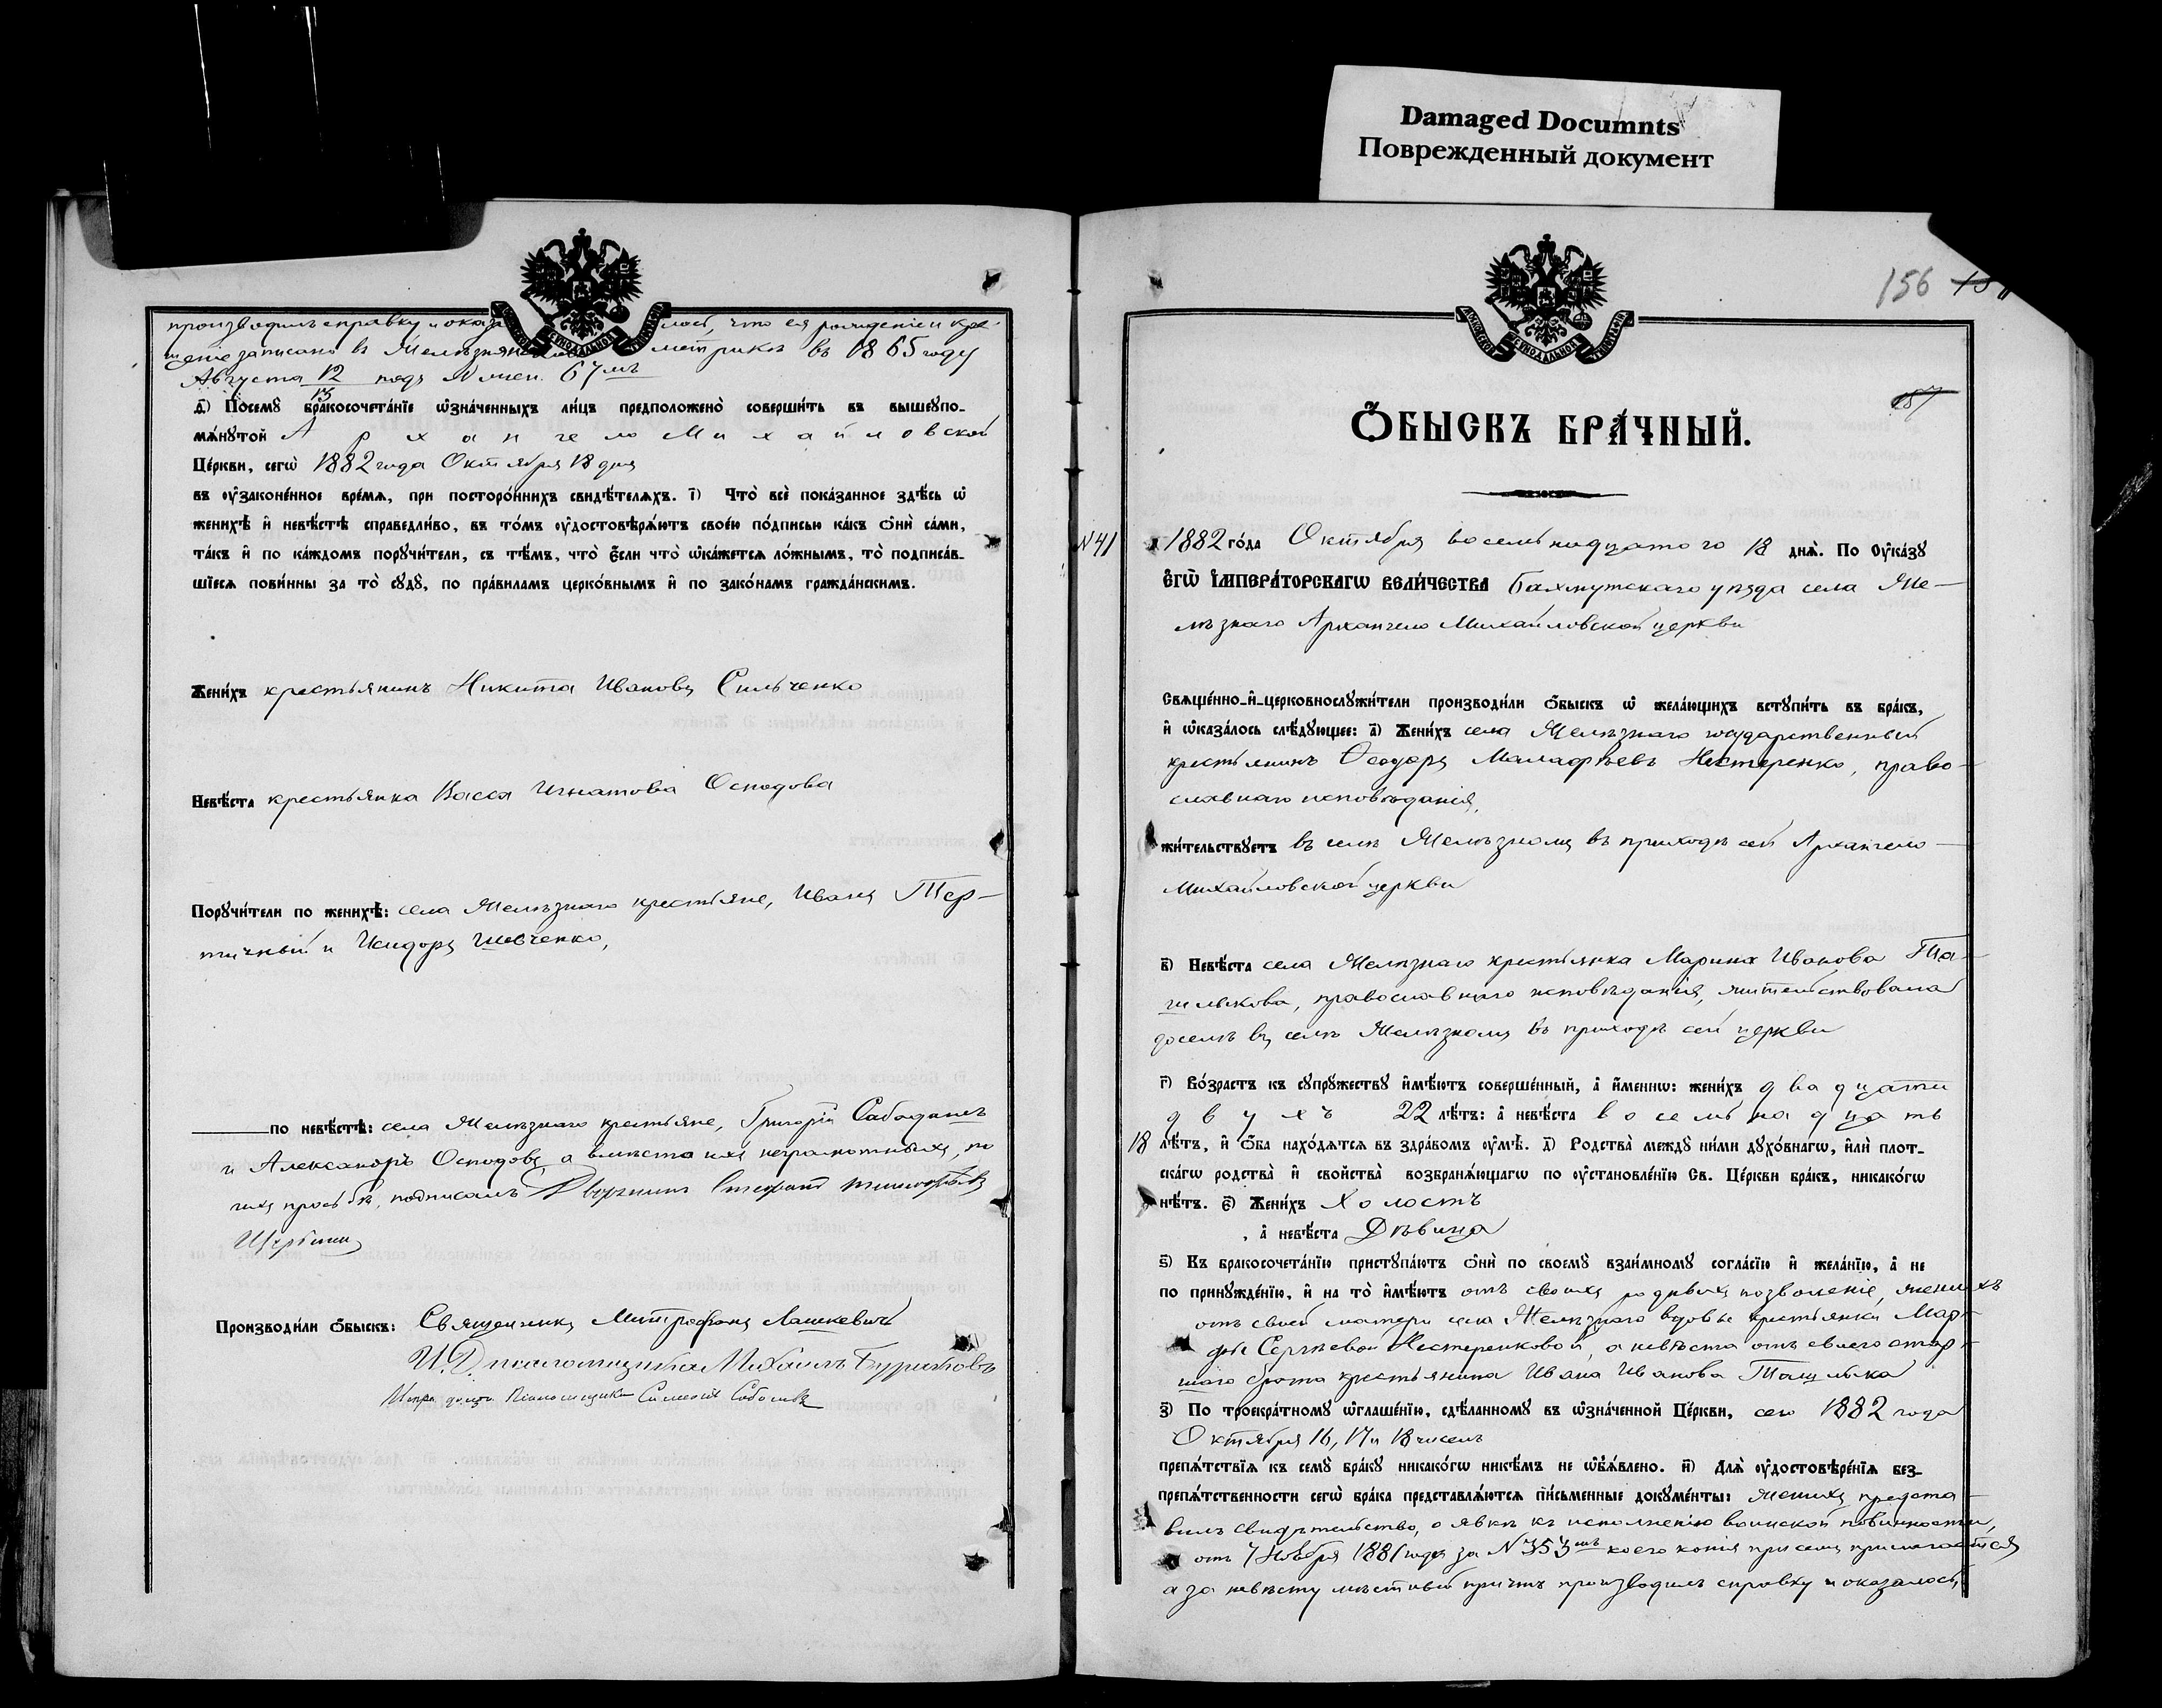 Damaged Documnts
Поврежденный документ
производилъ справку и оказалось, что ея рожденіе и кре-
щеніе записано въ метрикѣ въ 1865 году
Августа 12/13 подъ № 67мъ
д҃) Посемꙋ̀ бракосочета́нїе ѡ҆зна́ченныхъ ли́цъ предположено̀ соверши́ть въ вышеꙋпо-
мѧ́нꙋтой Архангело Михайловской
Це́ркви, сегѡ̀ 1882 года Октября 18 дня
въ ᲂу҆зако́ненное вре́мѧ, при посторо́ннихъ свидѣ́телѧхъ. і҃) Что̀ всѐ пока́занное здѣ́сь ѡ҆
женихѣ̀ и҆ невѣ́стѣ справедли́во, въ то́мъ ᲂу҆достовѣрѧ́ютъ свое́ю по́дписью ка́къ ѻ҆нѝ са́ми,
та́къ и҆ по ка́ждомъ порꙋчи́тели, съ тѣ́мъ, что̀ є҆́сли что̀ ѡ҆ка́жетсѧ ло́жнымъ, то̀ подписа́в-
шїесѧ пови́нны за то̀ сꙋдꙋ̀, по пра́виламъ церко́внымъ и҆ по зако́намъ гражда́нскимъ.
Жени́хъ крестьянинъ Никита Ивановъ Сильченко
Невѣ́ста крестьянка Васса Игнатова Осподова
Порꙋчи́тели по женихѣ̀: села Желѣзнаго крестьяне, Иванъ Тер-
тичный и Исидоръ Шевченко,
по невѣ́стѣ: села Желѣзнаго крестьяне, Григорій Сабадашъ
и Александръ Осподовъ, а вмѣсто ихъ неграмотныхъ, по
ихъ просьбѣ, подписалъ Дворянинъ Стефанъ Тимофѣевъ
Щербина
Производи́ли ѻ҆́быскъ: Священникъ Митрофанъ Лашкевичъ
И. Д. псаломщика Михаилъ
Испр. долж. Псаломщика Симеонъ Соболевъ
156
157
Ѻ҆́быскъ бра́чный.
№ 41
1882 го́да Октября восемьнадцатого 18 днѧ̀. По Оу҆ка́зꙋ
Є҆гѡ̀ І҆мпера́торскагѡ Вели́чества Бахмутскаго уѣзда села Же-
лѣзнаго Архангело Михайловской церкви
Свѧще́нно-и҆-церковнослꙋжи́тели производи́ли ѻ҆́быскъ ѡ҆ жела́ющихъ встꙋпи́ть въ бра́къ,
и҆ ѡ҆каза́лось слѣ́дꙋющее: а҃) Жени́хъ села Желѣзнаго государственный
крестьянинъ Ѳеодоръ Малафѣевъ Нестеренко, право-
славнаго исповѣданія,
жи́тельствꙋетъ въ селѣ Желѣзномъ въ приходѣ сей Архангело-
Михайловской церкви
в҃) Невѣ́ста села Желѣзнаго крестьянка Марина Иванова Та-
щлыкова, православнаго исповѣданія, жительствовала
доселѣ въ селѣ Желѣзномъ въ приходѣ сей церкви
г҃) Во́зрастъ къ сꙋпрꙋ́жествꙋ и҆мѣ́ютъ соверше́нный, а҆ и҆́меннѡ: жени́хъ двадцати
двухъ 22 лѣ́тъ: а҆ невѣ́ста восемьнадцать
18 лѣ́тъ, и҆ ѻ҆́ба нахо́дѧтсѧ въ здра́вомъ ᲂу҆мѣ̀. д҃) Родства̀ междꙋ̀ ни́ми дꙋхо́внагѡ, и҆лѝ плот-
ска́гѡ родства̀ и҆ сво́йства̀ возбранѧ́ющагѡ по ᲂу҆становле́нїю Св. Це́ркви бра́къ, никако́гѡ
нѣ́тъ. є҃) Жени́хъ Холостъ
, а҆ невѣ́ста Дѣвица
ѕ҃) Къ бракосочета́нїю пристꙋпа́ютъ ѻ҆нѝ по своемꙋ̀ взаи́мномꙋ согла́сїю и҆ жела́нїю, а҆ не
по принꙋжде́нїю, и҆ на то̀ и҆мѣ́ютъ отъ своихъ родныхъ позволеніе, женихъ
отъ своей матери села Желѣзнаго вдовы крестьянки Мар-
фы Сергѣевой Нестеренковой, а невѣста отъ своего стар-
шаго брата крестьянина Ивана Иванова Тащлыка
з҃) По троекра́тномꙋ ѡ҆глаше́нїю, сдѣ́ланномꙋ въ ѡ҆зна́ченной Це́ркви, сего 1882 года
Октября 16, 17 и 18 чиселъ
препѧ́тствїѧ къ семꙋ̀ бра́кꙋ никако́гѡ никѣ́мъ не ѡ҆б̾ѧ́влено. и҃) Длѧ̀ ᲂу҆достовѣре́нїѧ без-
препѧ́тственности сегѡ̀ бра́ка представлѧ́ютсѧ пи́сьменные докꙋме́нты: женихъ предста-
вилъ свидѣтельство, о явкѣ къ исполненію воинской повинности,
отъ 7 Ноября 1881 года за № 353мъ коего копія при семъ прилагается
а за невѣсту мѣстный причтъ производилъ справку и оказалось,